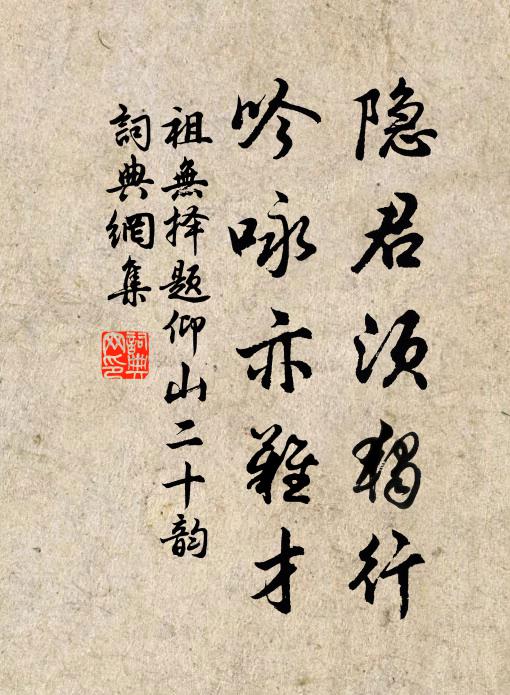 隐君须独行
吟咏亦难才
祖無择题仰山二十韵
詞典網集
詞典网印